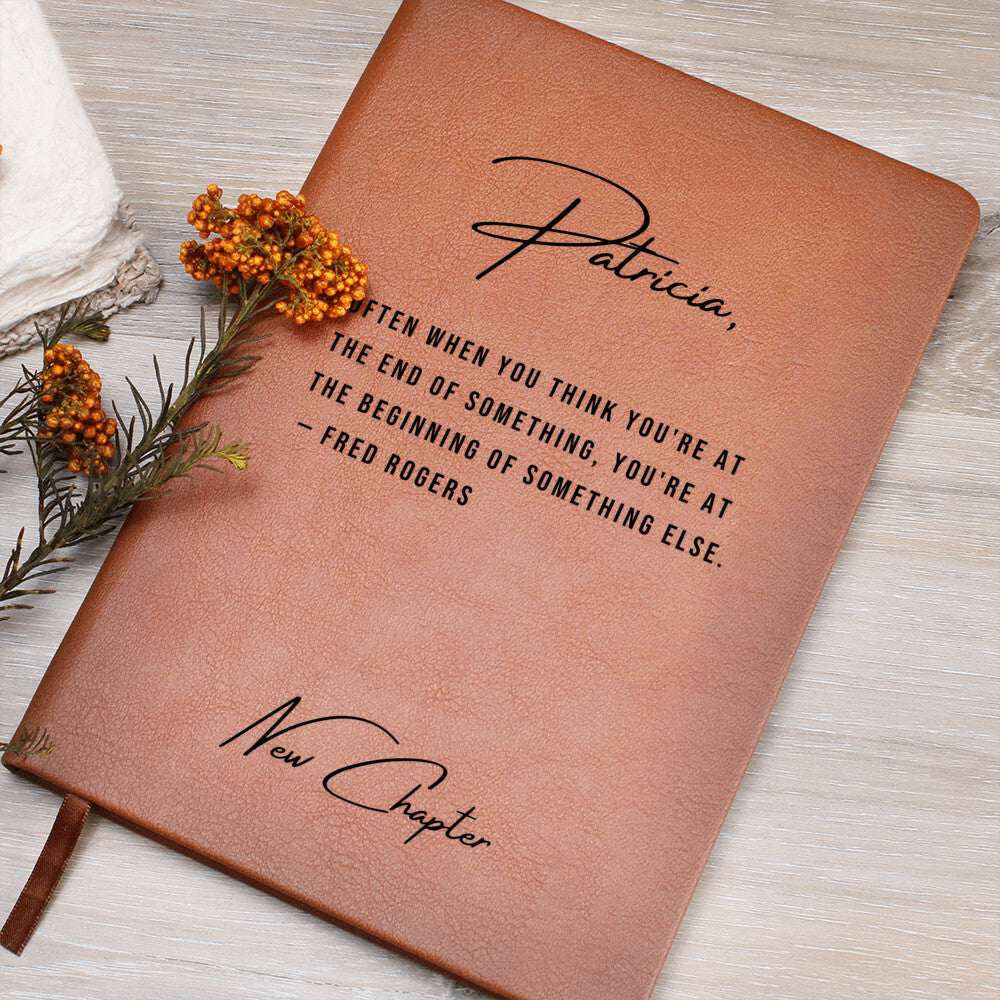 Patricia,
OFTEN WHEN YOU THINK YOU'RE AT
THE END OF SOMETHING, YOU'RE AT
THE BEGINNING OF SOMETHING ELSE.
– FRED ROGERS
New Chapter